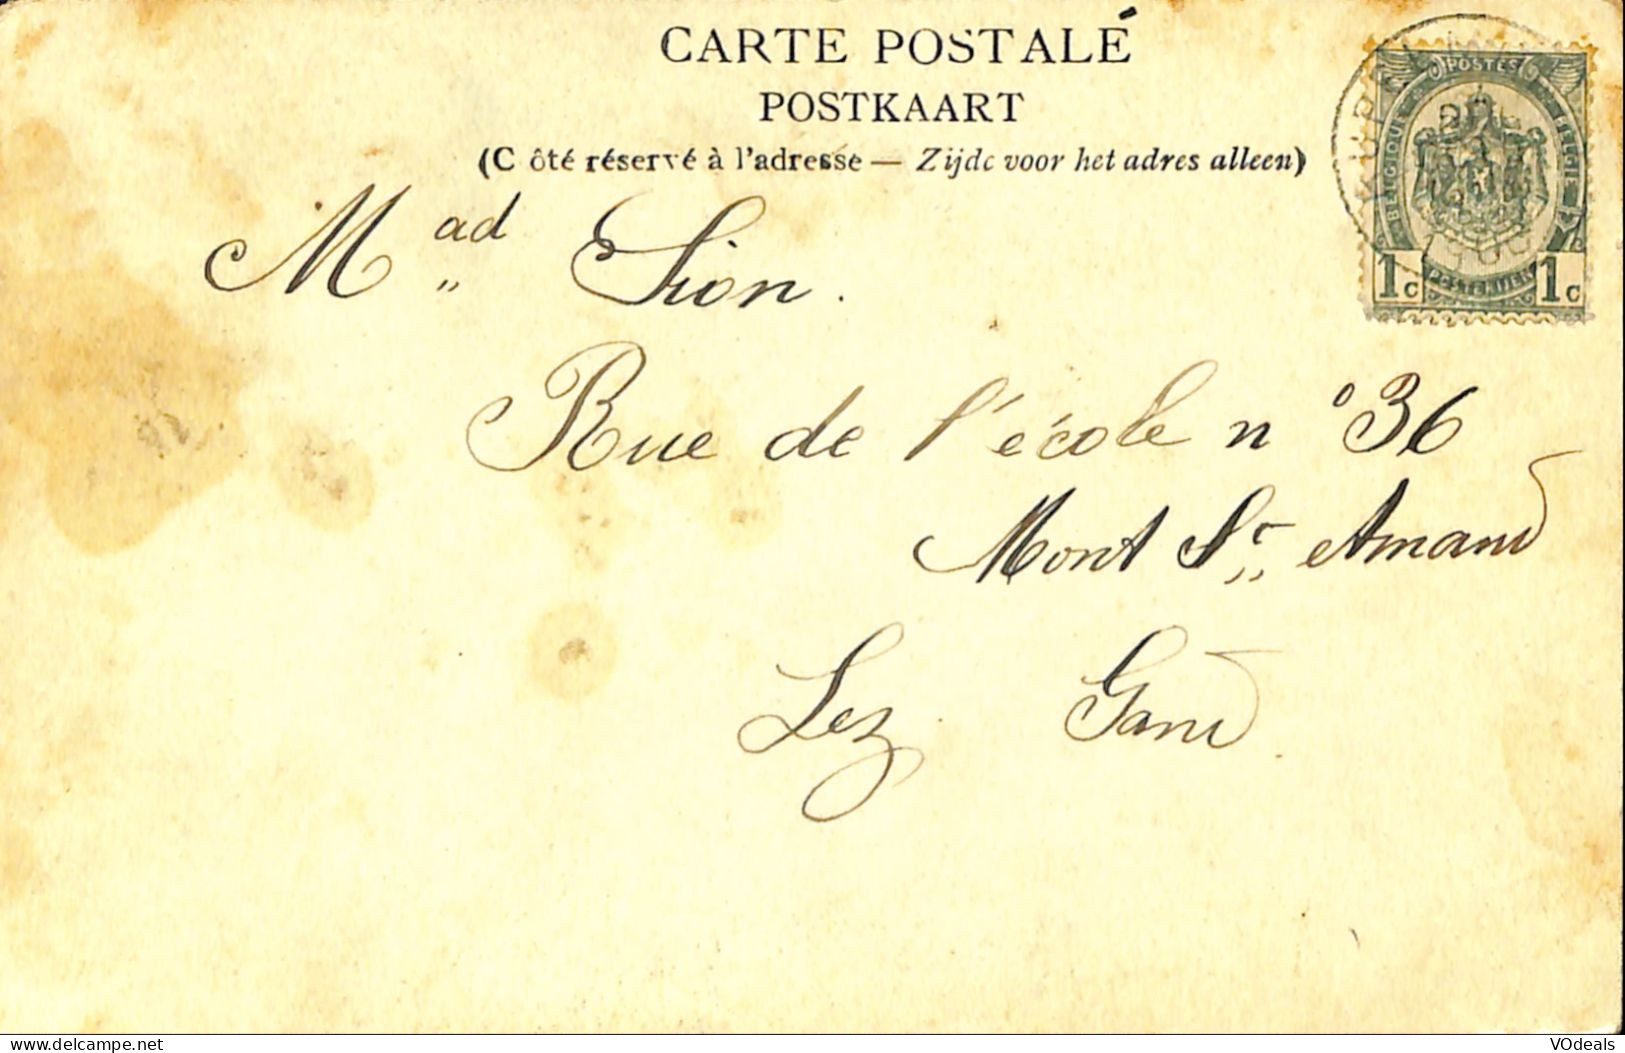 CARTE POSTALÉ
POSTKAART
(C ôté réservé à l'adresse — Zijde voor het adres alleen)
POSTES
BELGIQUE
BELGIE
POSTERIJEN
1c 1c
Mad Lion.
Rue de l'école n° 36
Mont St. Amand
Lez Gand.
delcampe.net
VOdeals